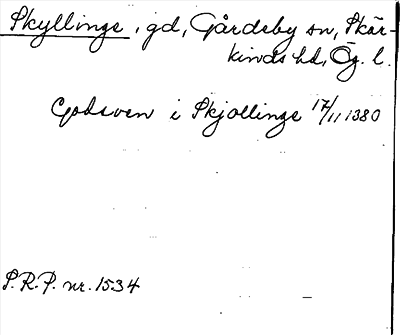 Skyllinge, gd, Gårdeby sn, Skär-
kinds hd, Ög. l.
Godsven i Skjollinge 17/11 1380
S.R.P. nr. 1534